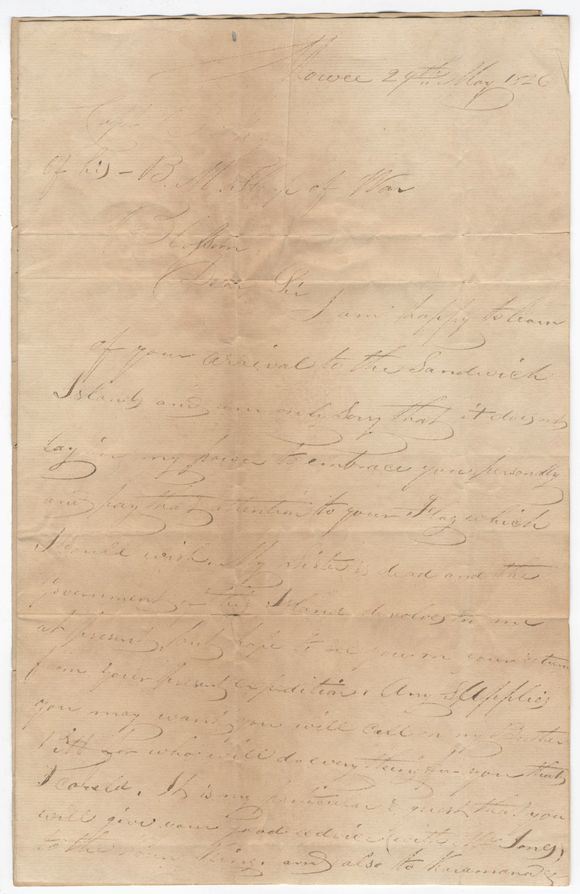 Mowee 29th May 1826
Capt
of his B. M. Ship of War
Blossom
Dear Sir
I am happy to learn
of your arrival to the Sandwich
Islands and am only Sorry that it does not
lay in my power to embrace you personally
and pay that attention to your Flag which
I could wish. My Sister is dead and the
government of this Island devolves on me
at present, but hope to see you on your return
from your present expedition. Any Supplies
you may want you will call on my Brother
Pitt who will do every thing for you that
I could. It is my particular request that you
will give your good advice (with Mr Jones)
to the young King, and also to